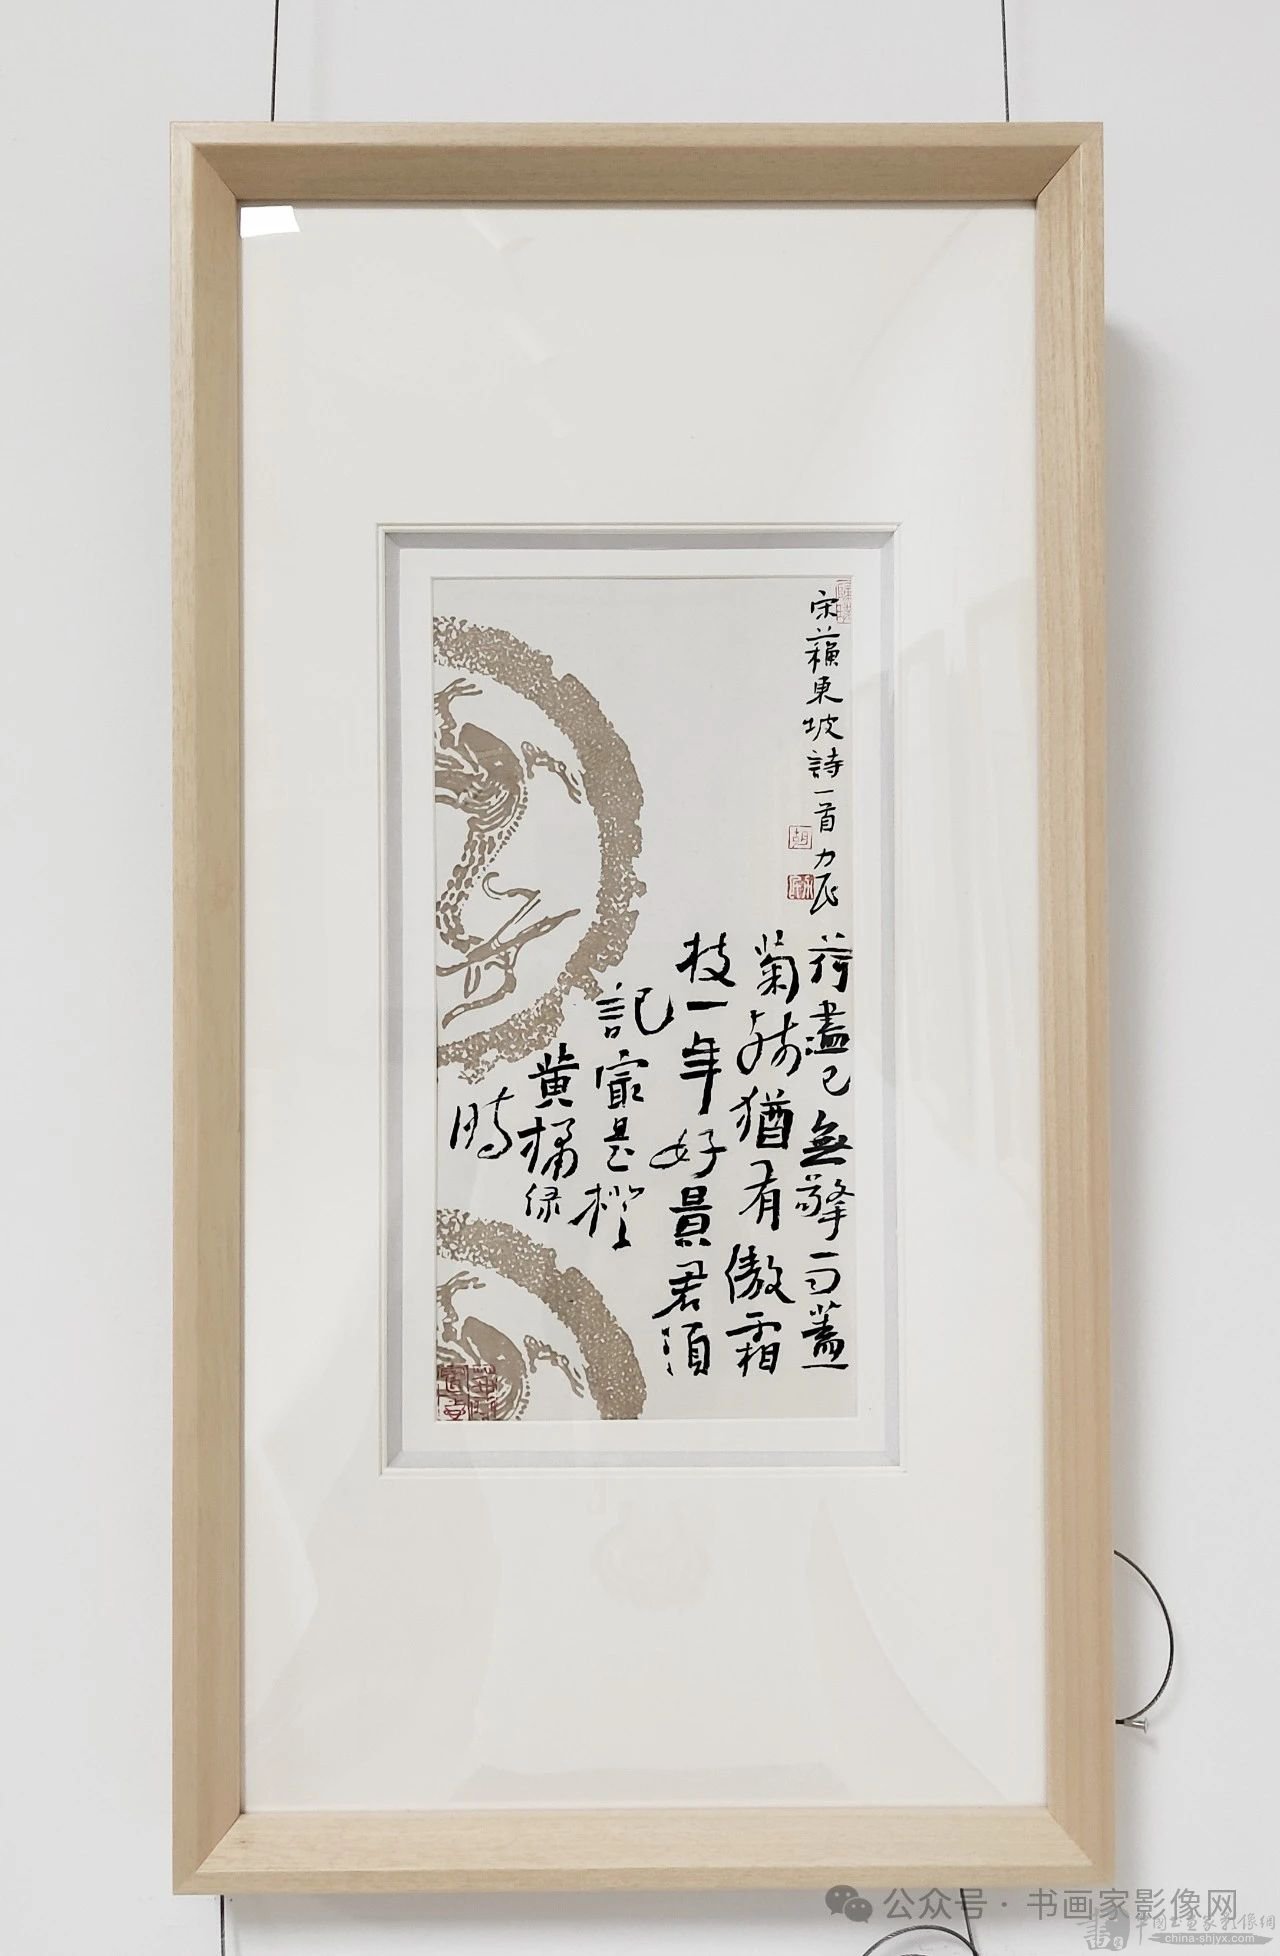 宋蘇東坡詩一首 力民
荷盡已無擎雨蓋
菊殘猶有傲霜
枝一年好景君須
記最是橙
黄橘绿
時
公众号 · 书画家影像网
中國书畫家影像網
china-shjyx.com